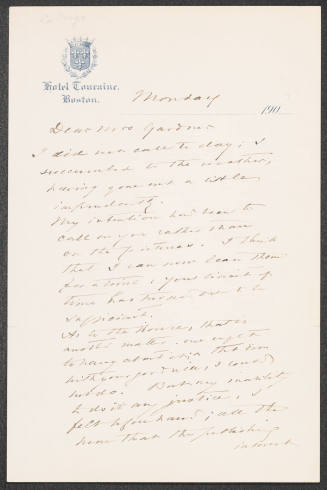 Hotel Touraine.
Boston.
Monday
190
Dear Mrs Gardner
I did not call to day; I
succumbed to the weather,
having gone out a little
imprudently.
My intention had been to
call on you rather than
on the pictures. I think
that I can now leave them
for a time; your limit of
time has turned out to be
sufficient.
As to the House, that is
another matter. One ought
to hang about in it. That even
with your good wishes, I could
not do. But my inability
to do it any justice, I
felt
the
mean that the
interest